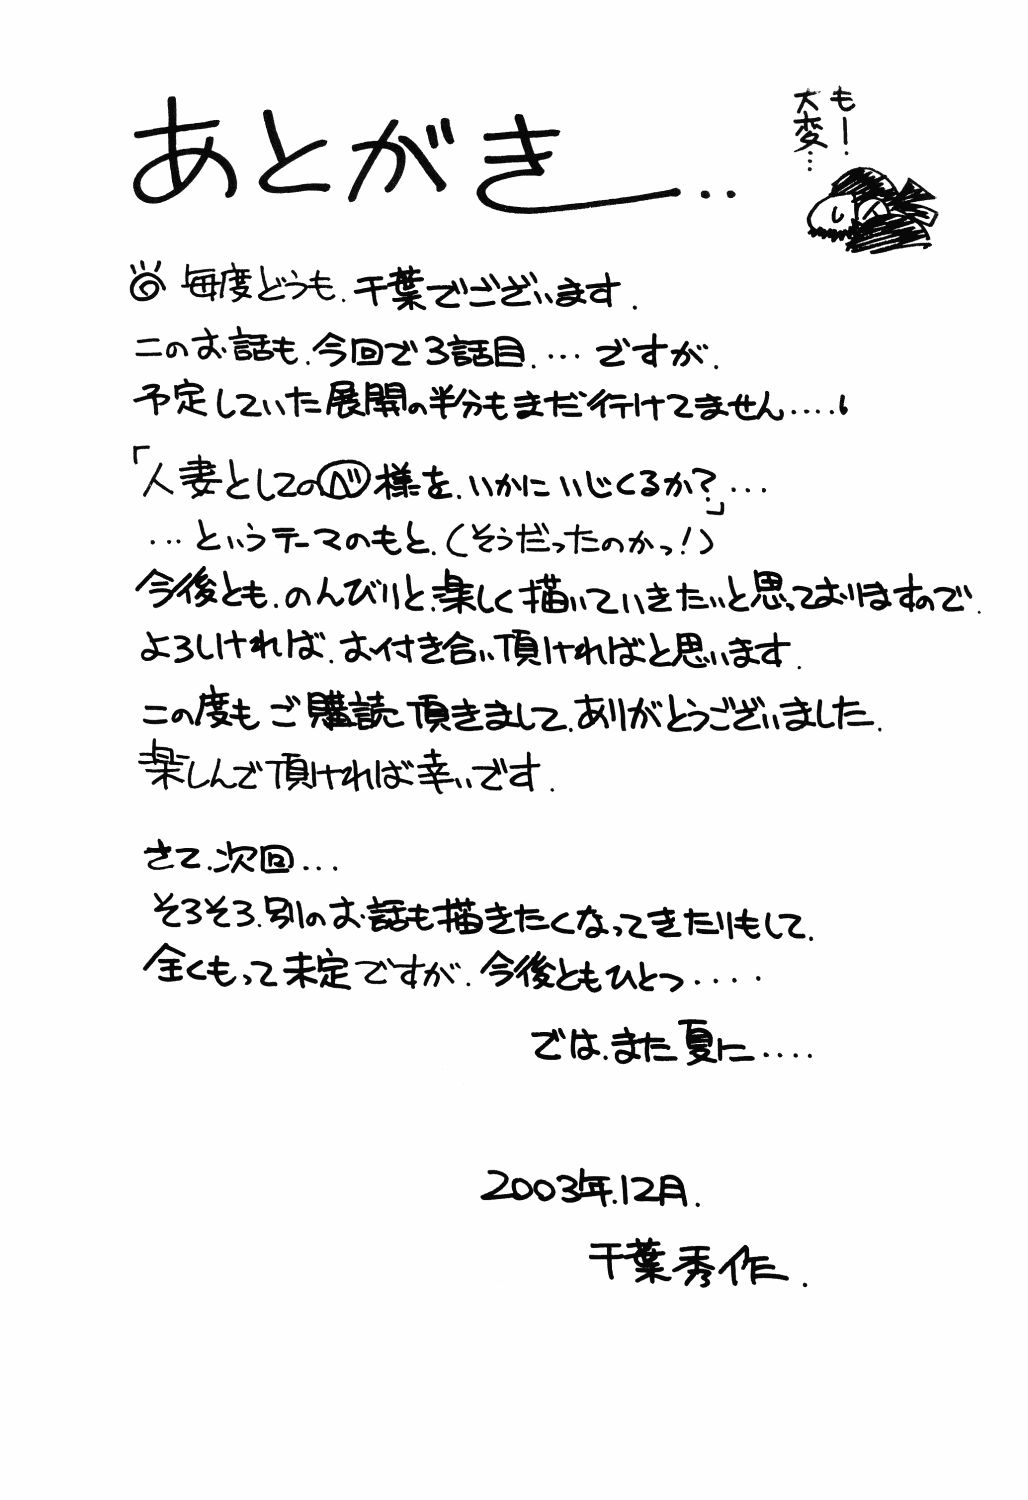 あとがき..
もー!
大変…
毎度どうも.千葉でございます.
このお話も.今回で3話目.…ですが.
予定していた展開の半分もまだ行けてません....
「人妻としてのベ様を.いかにいじくるか?…」
…というテーマのもと.(そうだったのかっ!)
今後とも.のんびりと.楽しく描いていきたいと思っておりますので.
よろしければ.お付き合い頂ければと思います.
この度もご購読頂きまして.ありがとうございました.
楽しんで頂ければ幸いです.
さて.次回...
そろそろ.別のお話も描きたくなってきたりもして.
全くもって未定ですが.今後ともひとつ....
では.また夏に....
2003年.12月.
千葉秀作.